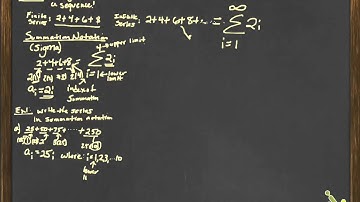 a sequence!
Finite Series: 2+4+6+8
Infinite Series: 2+4+6+8+··· = ∞ Σ i=1 2i
Summation Notation
(Sigma)
upper limit
2+4+6+8 = 4 Σ i=1 2i
2(1) 2(2) 2(3) 2(4)
lower limit
ai = 2i
index of summation
Ex1: write the series
in summation notation
a) 25+50+75+···+250
25(1) 25(2) 25(3) 25(10)
ai = 25i where i=1,2,3,...10
lower